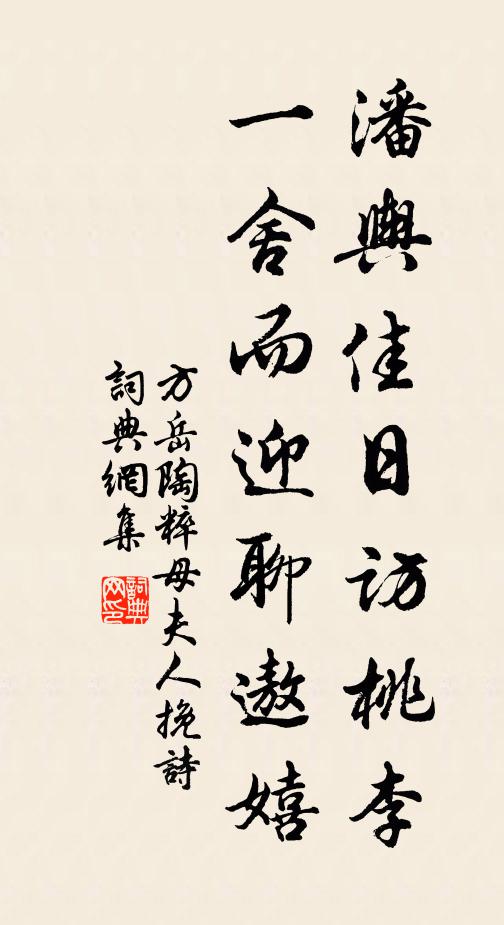 潘輿佳日訪桃李
一舍而迎聊遨嬉
方岳陶粹母夫人挽詩
詞典網集
詞典網印